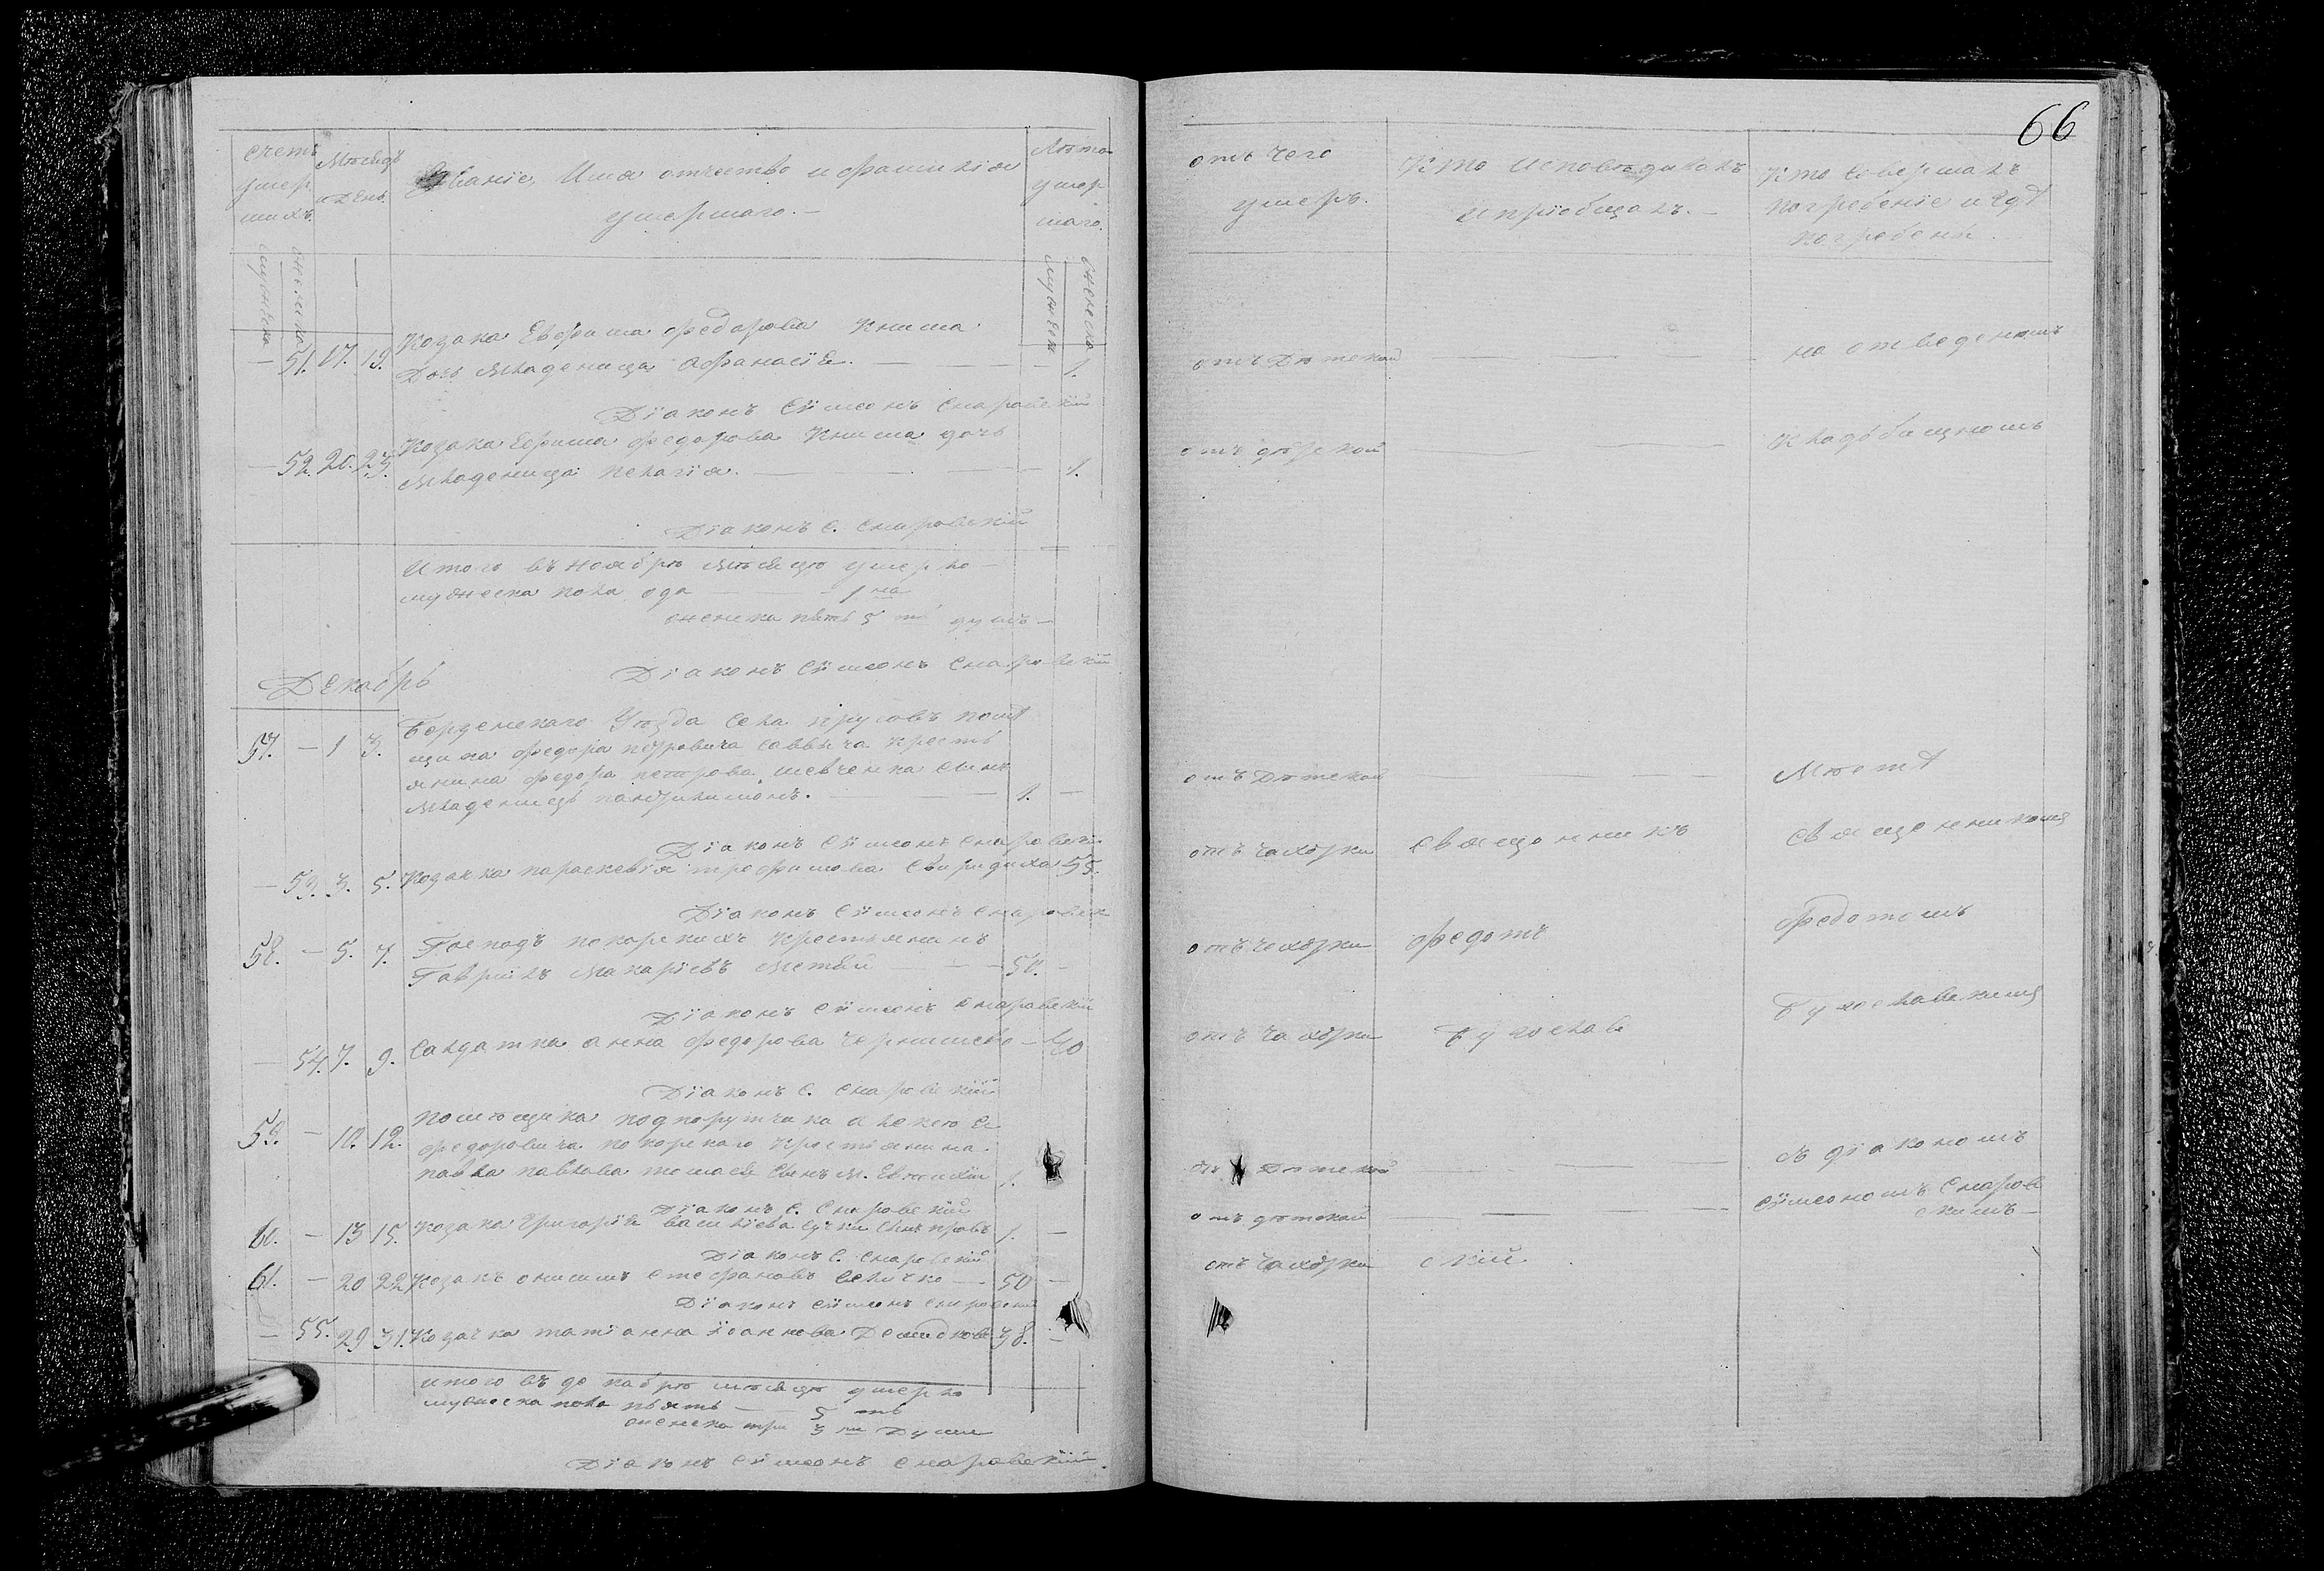 66
счетъ
умер
шихъ.
Мѣсяцъ
и день.
Званіе, Имя отчество и фамилія
умершаго. —
Лѣта
умер
шаго.
мужеска
женска
мужеска
женска
Козака Ефима Федорова Книша
— 51. 17. 19. Дочь младеница Афанасія. — — — 1.
Діаконъ Сѵмеонъ Снаровскій
Козака Ефима Федорова Книша дочь
— 52. 20. 23. младеница Пелагія. — — — 1.
Діаконъ С. Снаровскій
Итого въ ноябрѣ мѣсяцѣ умерло —
мужеска пола одa — — 1 на
женска пять 5 ть душъ —
Діаконъ Сѵмеонъ Снаровскій
Декабрь
Уѣзда Села помѣ
57. — 1 3. щика Федора Петровича Саввича крестъ
янина Федора Петрова Шевченка сынъ
младенецъ Пантилимонъ. — — 1. —
Діаконъ Сѵмеонъ Снаровскій
— 53. 3. 5. Козачка Параскевія Трофимова Свиридиха 55.
Діаконъ Сѵмеонъ
58. — 5. 7. Господъ Покорскихъ крестьянинъ
Гавріилъ Макаріевъ — — 50. —
Діаконъ Сѵмеонъ Снаровскій
— 54. 7. 9. Салдатка Анна Федорова — 40
Діаконъ С. Снаровскій
Помѣщика подпорутчика Алексѣя
59. — 10. 12. Федоровича Покорскаго крестьянина
Павла Павлова сынъ м. Евтихій 1.
Діаконъ С. Снаровскій
60. — 13 15. Козака Григорія Василіева сынъ 1. —
Діаконъ С. Снаровскій
61. — 20 22 Козакъ Онисимъ Стефановъ Величко — 50 —
Діаконъ Сѵмеонъ Снаровскій
— 55. 29 31. Козачка Татіанна Іоаннова 38. —
Итого въ декабрѣ мѣсяцѣ умерло
мужеска пола пьять — 5 ть
женска три 3 ри Души
Діаконъ Сѵмеонъ Снаровскій.
отъ чего
умеръ.
Кто исповѣдивалъ
и пріобщалъ. —
Кто совершалъ
погребеніе и гдѣ
погребены.
отъ Дѣтской — — — на отведеномъ
отъ дѣтской — — кладбищномъ
отъ Дѣтской — — Мѣстѣ
отъ чахотки Священникъ Священникомъ
отъ чахотки Федотъ Федотомъ
отъ чахотки
отъ Дѣтской — — — съ діакономъ
отъ дѣтской — — — Сѵмеономъ Снаров
скимъ —
отъ чахотки скій.